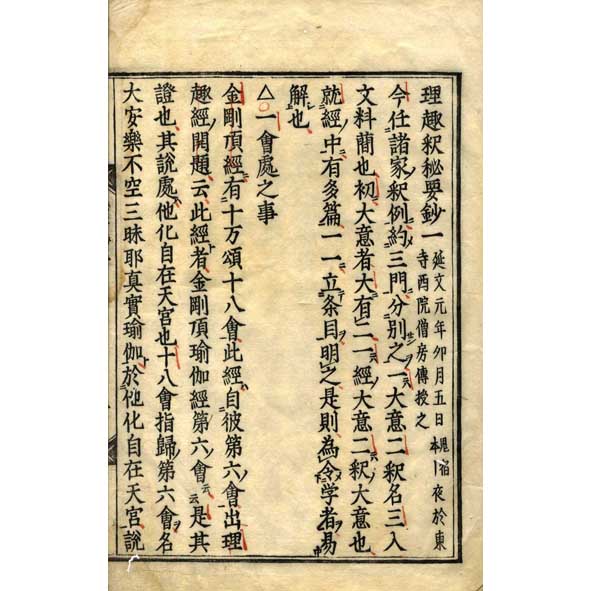 理趣釈秘要鈔一 延文元年卯月五日鬼宿夜於東寺西院僧房傳授之
今任諸家釈例約三門分別之一大意二釈名三入
文料簡也初大意者大有二一經大意二釈大意也
就經中有多篇一一立条目明之是則為令学者易
解也
△一會處之事
金剛頂經有十万頌十八會此經自彼第六會出理
趣經開題云此經者金剛頂瑜伽經第六會云云是其
證也其説處他化自在天宮也十八會指歸第六會名
大安樂不空三昧耶真實瑜伽於他化自在天宮説